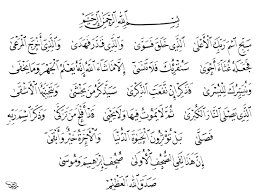 بِسْمِ اللَّهِ الرَّحْمَنِ الرَّحِيمِ
سَبِّحِ اسْمَ رَبِّكَ الْأَعْلَى الَّذِي خَلَقَ فَسَوَّى وَالَّذِي قَدَّرَ فَهَدَى وَالَّذِي أَخْرَجَ الْمَرْعَى
فَجَعَلَهُ غُثَاءً أَحْوَى سَنُقْرِئُكَ فَلَا تَنْسَى إِلَّا مَا شَاءَ اللَّهُ إِنَّهُ يَعْلَمُ الْجَهْرَ وَمَا يَخْفَى
وَنُيَسِّرُكَ لِلْيُسْرَى فَذَكِّرْ إِنْ نَفَعَتِ الذِّكْرَى سَيَذَّكَّرُ مَنْ يَخْشَى وَيَتَجَنَّبُهَا الْأَشْقَى
الَّذِي يَصْلَى النَّارَ الْكُبْرَى ثُمَّ لَا يَمُوتُ فِيهَا وَلَا يَحْيَى قَدْ أَفْلَحَ مَنْ تَزَكَّى وَذَكَرَ اسْمَ رَبِّهِ
فَصَلَّى بَلْ تُؤْثِرُونَ الْحَيَاةَ الدُّنْيَا وَالْآخِرَةُ خَيْرٌ وَأَبْقَى
إِنَّ هَذَا لَفِي الصُّحُفِ الْأُولَى صُحُفِ إِبْرَاهِيمَ وَمُوسَى
صَدَقَ اللَّهُ الْعَظِيمُ